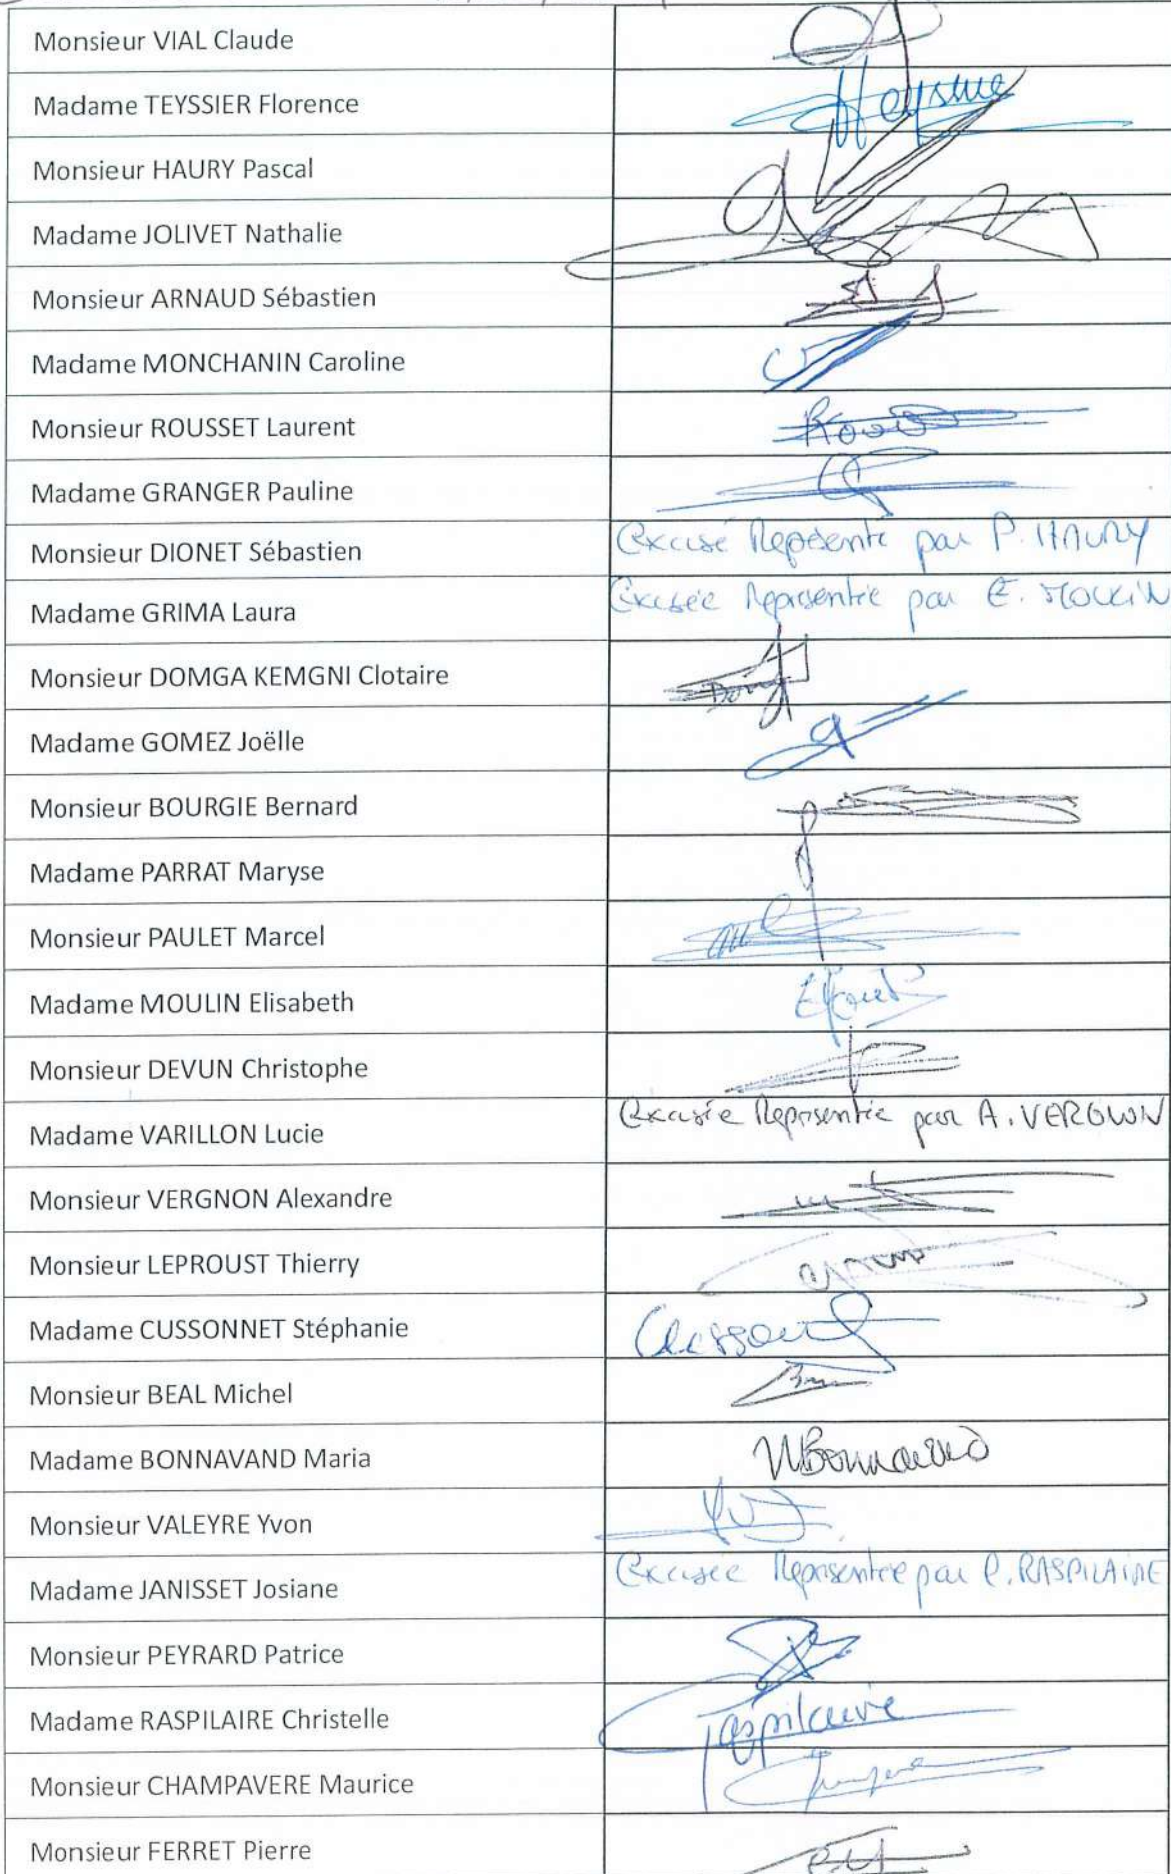 Monsieur VIAL Claude
Madame TEYSSIER Florence
Monsieur HAURY Pascal
Madame JOLIVET Nathalie
Monsieur ARNAUD Sébastien
Madame MONCHANIN Caroline
Monsieur ROUSSET Laurent
Madame GRANGER Pauline
Monsieur DIONET Sébastien Excusé Représenté par P. HAURY
Madame GRIMA Laura Excusée Représentée par E. MOULIN
Monsieur DOMGA KEMGNI Clotaire
Madame GOMEZ Joëlle
Monsieur BOURGIE Bernard
Madame PARRAT Maryse
Monsieur PAULET Marcel
Madame MOULIN Elisabeth
Monsieur DEVUN Christophe
Madame VARILLON Lucie Excusée Représentée par A. VERGNON
Monsieur VERGNON Alexandre
Monsieur LEPROUST Thierry
Madame CUSSONNET Stéphanie
Monsieur BEAL Michel
Madame BONNAVAND Maria MBonnavand
Monsieur VALEYRE Yvon
Madame JANISSET Josiane Excusée Représentée par C. RASPILAIRE
Monsieur PEYRARD Patrice
Madame RASPILAIRE Christelle Raspilaire
Monsieur CHAMPAVERE Maurice
Monsieur FERRET Pierre